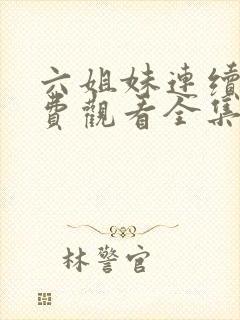 六姐妹連續
費觀看全集
林警官